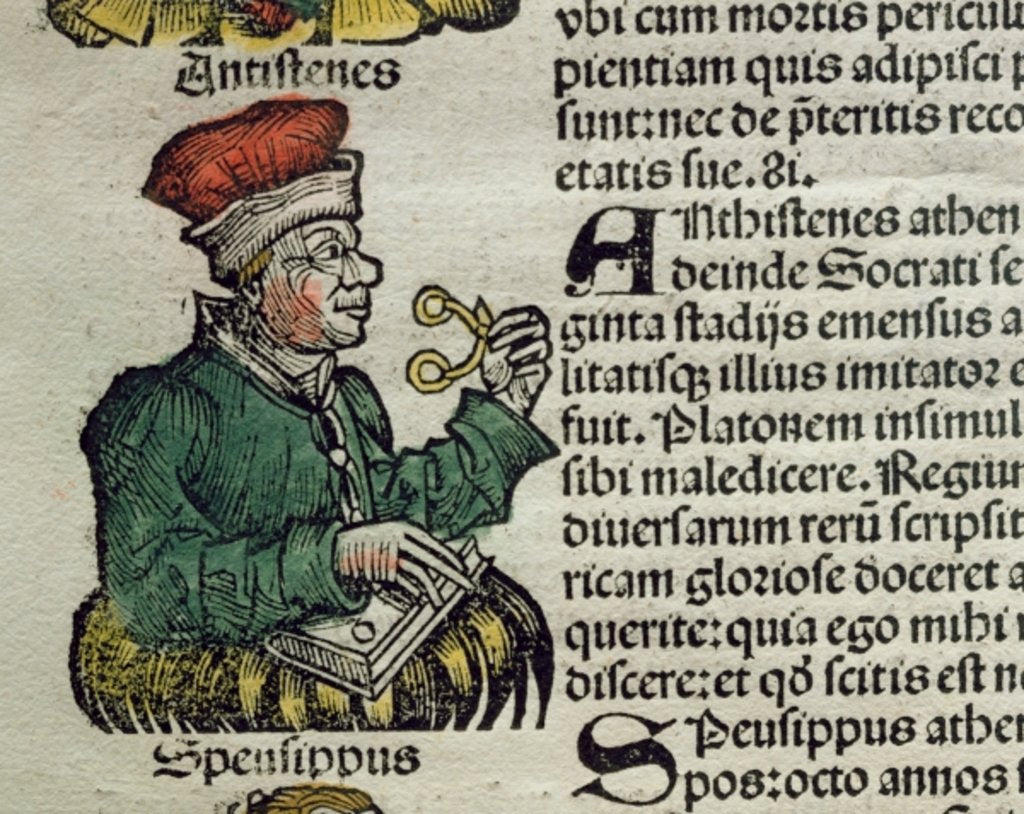 Antistenes
Speusippus
vbi cum mortis pericul
pientiam quis adipisci p
sunt:nec de p̄teritis reco
etatis sue.81.
ANthistenes athen
deinde Socrati se
ginta stadijs emensus a
litatisqꝫ illius imitator e
fuit. Platonem insimul
sibi maledicere. Regiu
diuersarum rerū scripsit
ricam gloriose doceret a
querite:quia ego mihi
discere:et qđ scitis est ne
SPeusippus athen
pos:octo annos